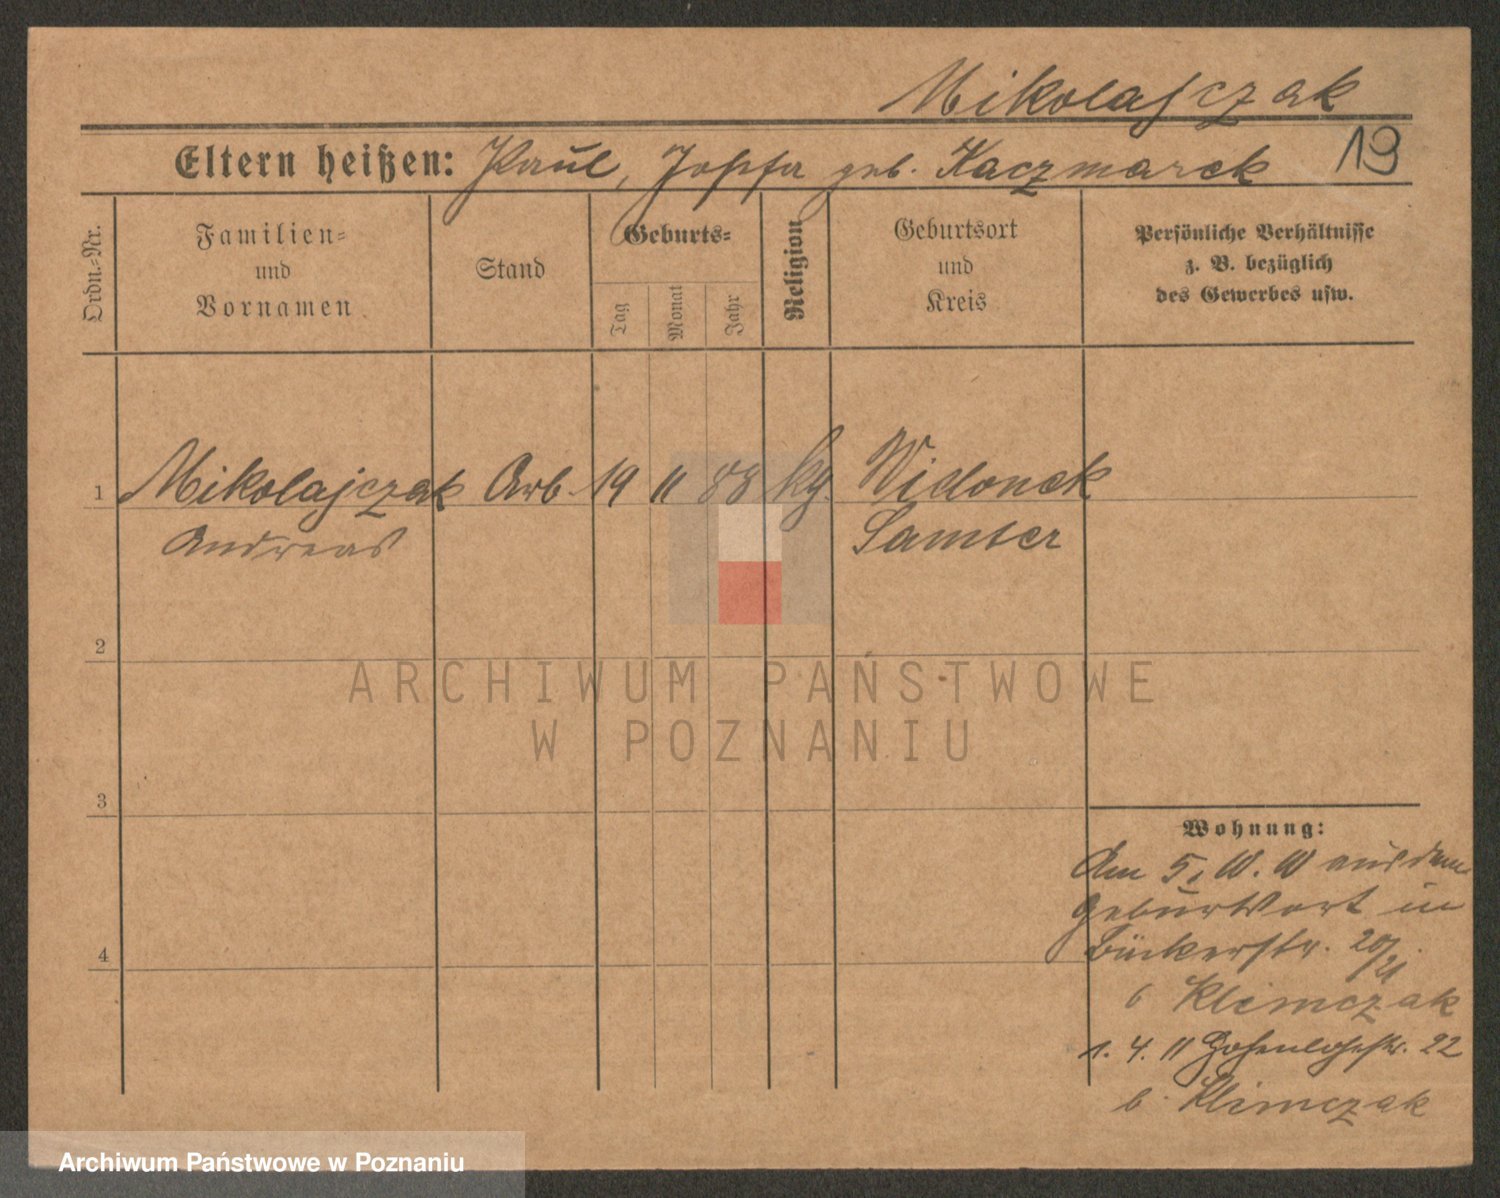 Mikolajczak
Eltern heißen: Paul, Josefa geb. Kaczmarek 19
Ordn.-Nr.
Familien-
und
Vornamen
Stand
Geburts-
Tag
Monat
Jahr
Religion
Geburtsort
und
Kreis
Persönliche Verhältnisse
z. B. bezüglich
des Gewerbes usw.
1 Mikolajczak Arb. 19 11 88 kg. Widonek
Andreas Samter
2
ARCHIWUM PAŃSTWOWE
W POZNANIU
3
Wohnung:
Am 5. aus dem
Geburtsort in
Bückerstr. 20/21
4
b Klimczak
1. 4. 11 Hohenlohestr. 22
b. Klimczak
Archiwum Państwowe w Poznaniu